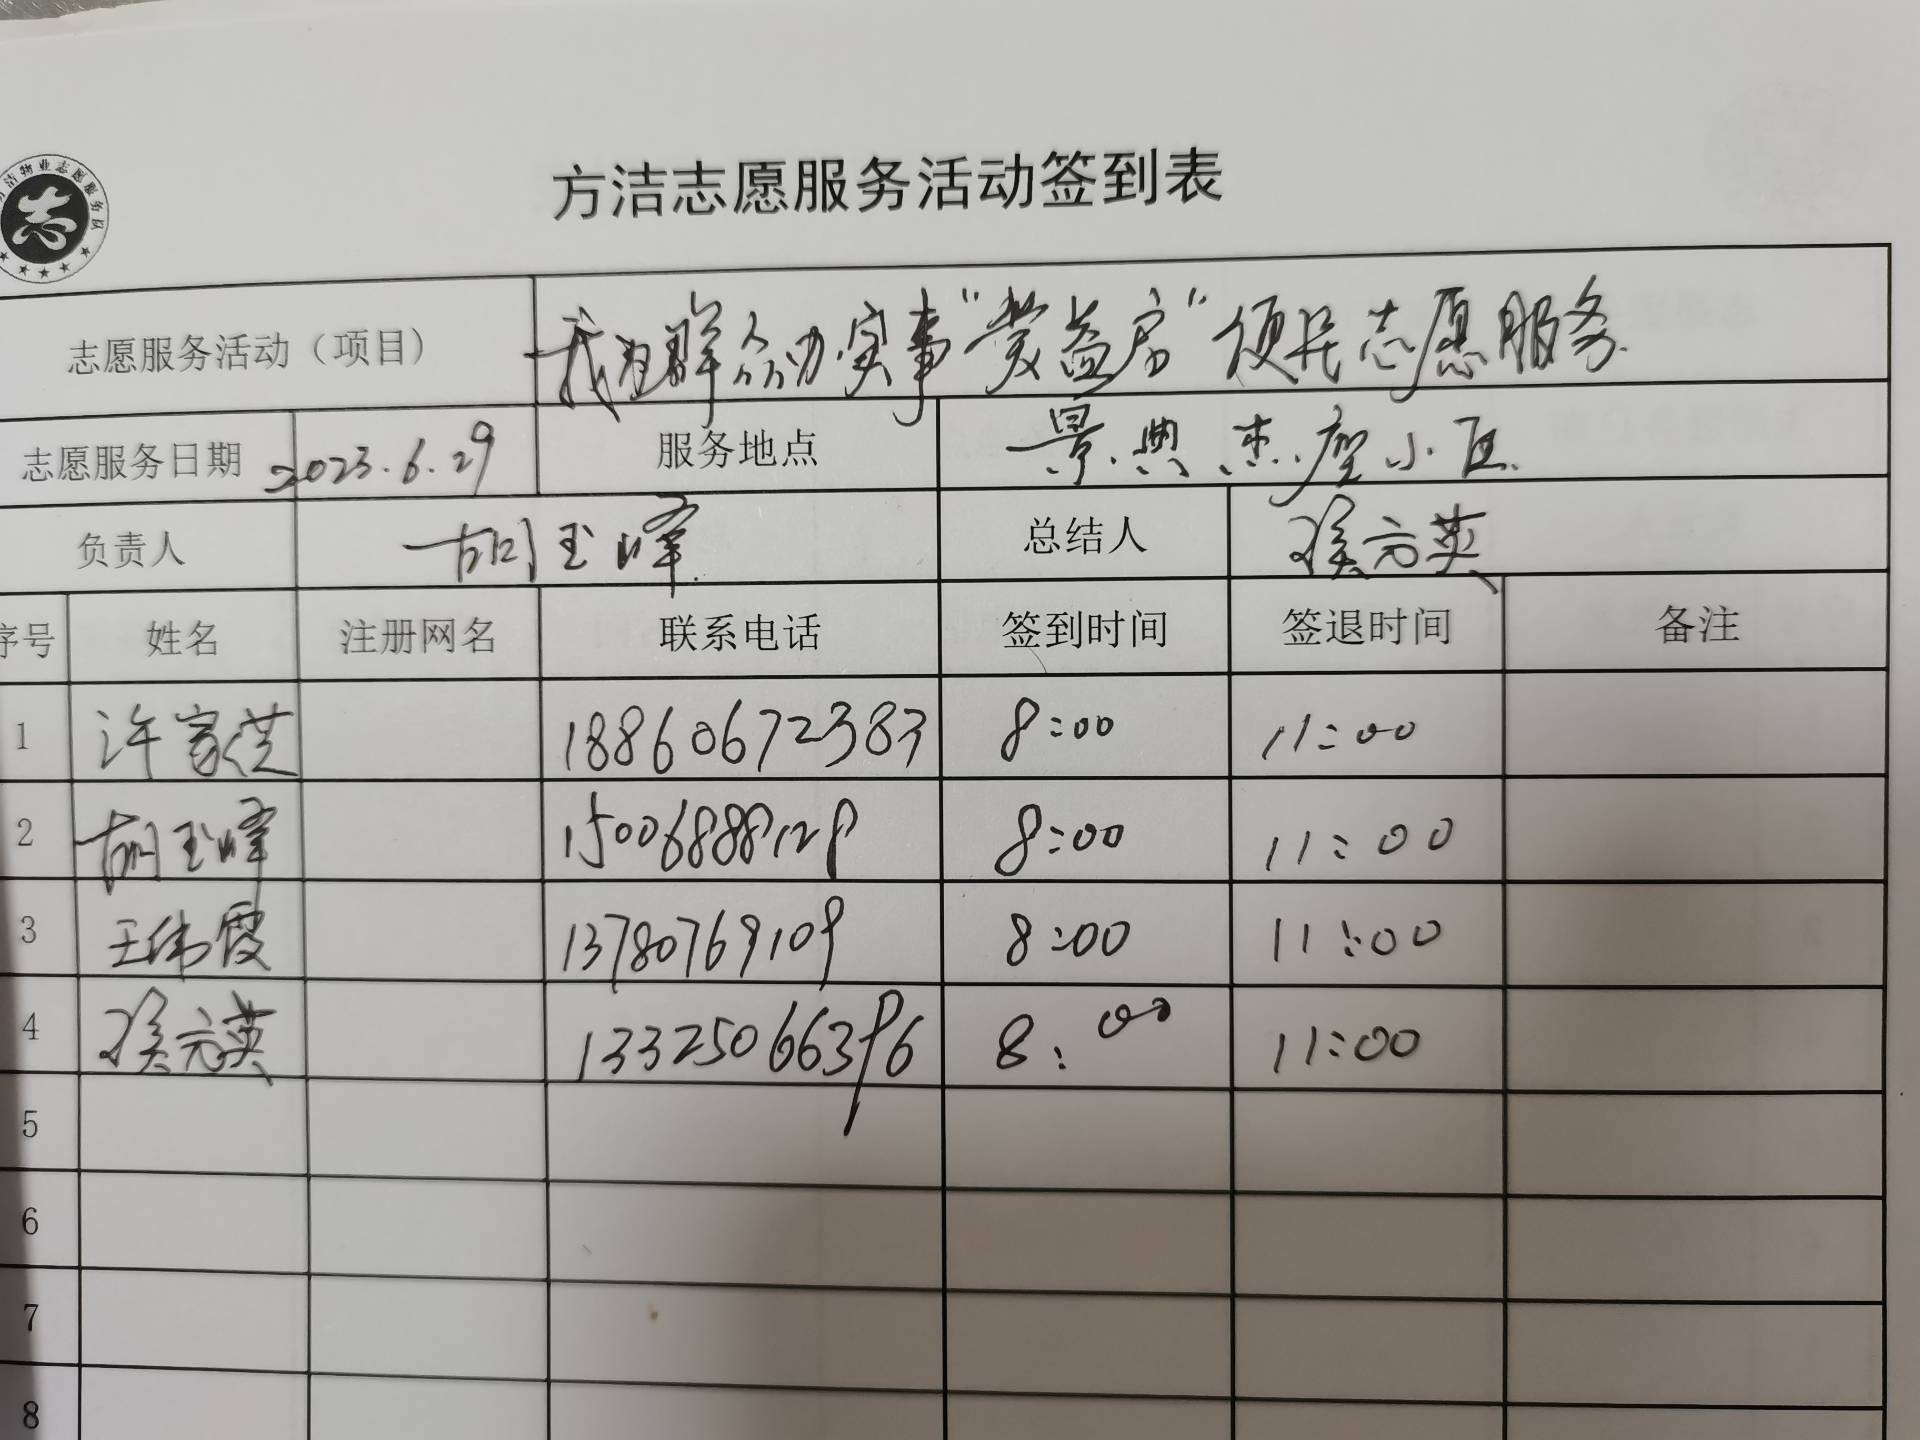 洁物业志愿服务队
志
方洁志愿服务活动签到表
志愿服务活动（项目） 我为群众办实事“爱益店”便民志愿服务
志愿服务日期 2023.6.29 服务地点 景典杰座小区
负责人 胡玉峰 总结人 侯元英
序号 姓名 注册网名 联系电话 签到时间 签退时间 备注
1 许家 18860672383 8:00 11:00
2 胡玉峰 15006888128 8:00 11:00
3 王伟霞 13780769109 8:00 11:00
4 侯元英 13325066396 8:00 11:00
5
6
7
8